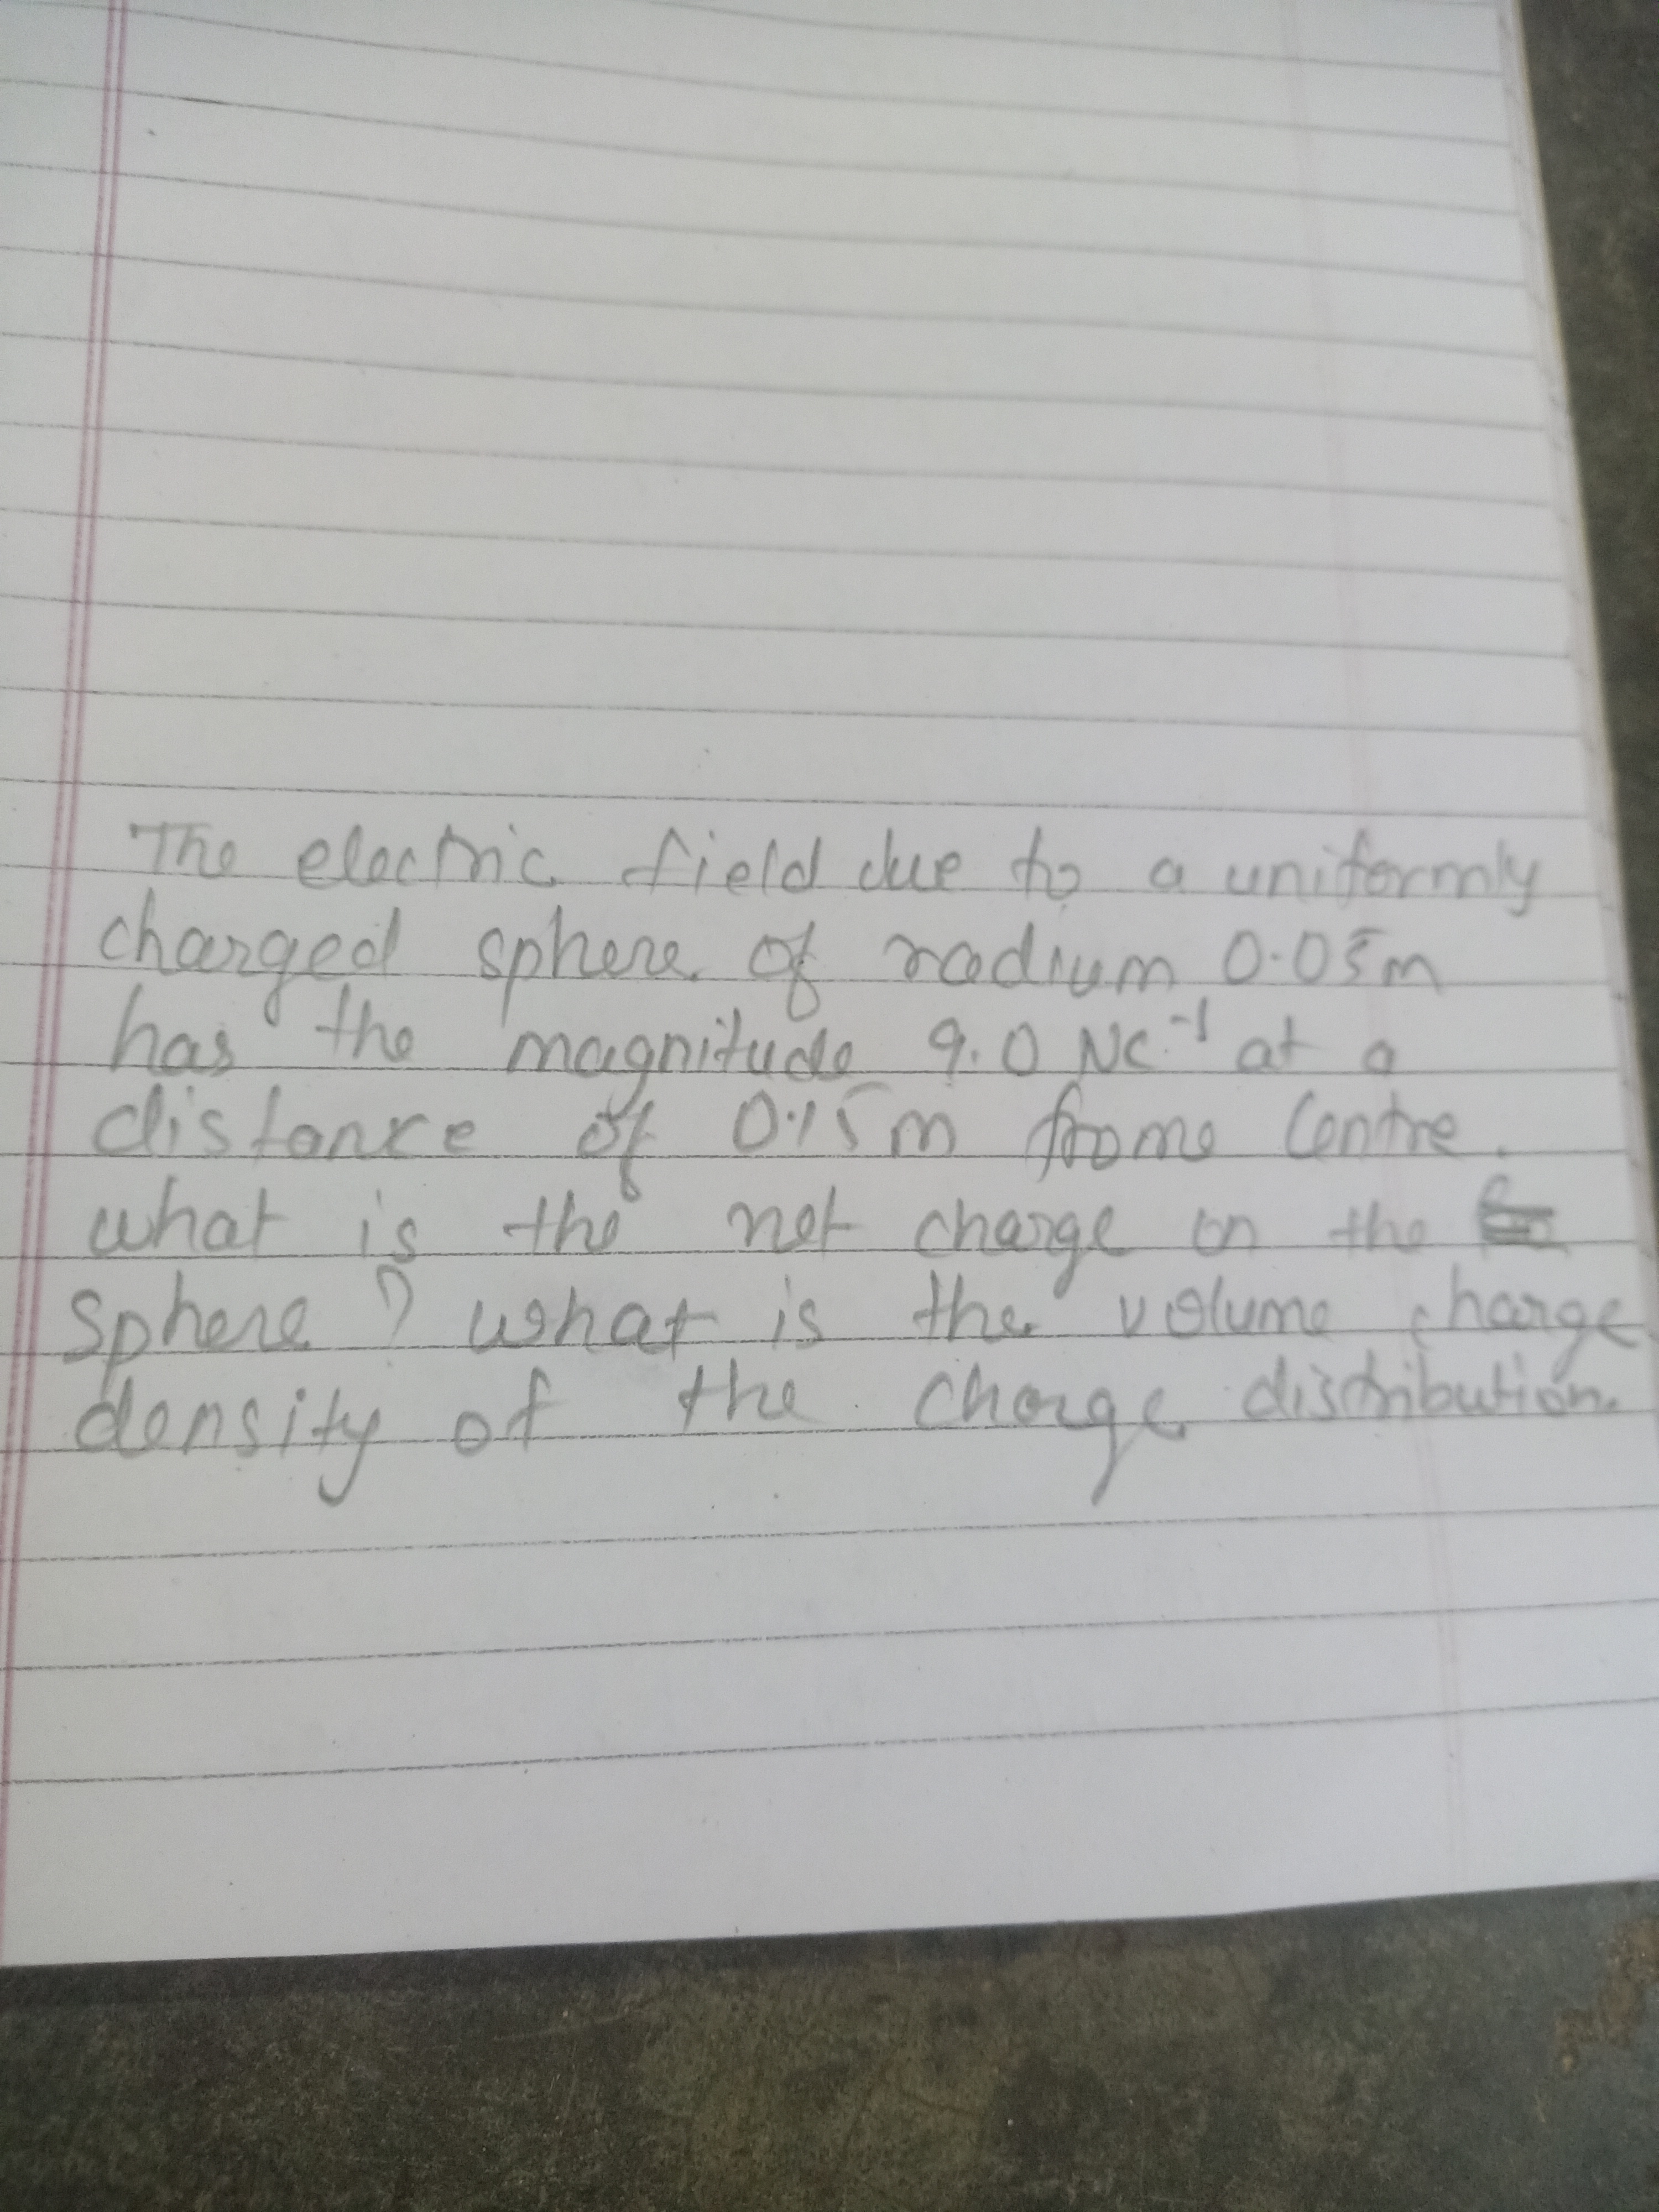 The electric field due to a uniformly
charged sphere of radium 0.05m
has the magnitude 9.0 NC⁻¹ at a
distance of 0.15m frome Centre.
what is the net charge on the
sphere? what is the volume charge
density of the charge distribution.